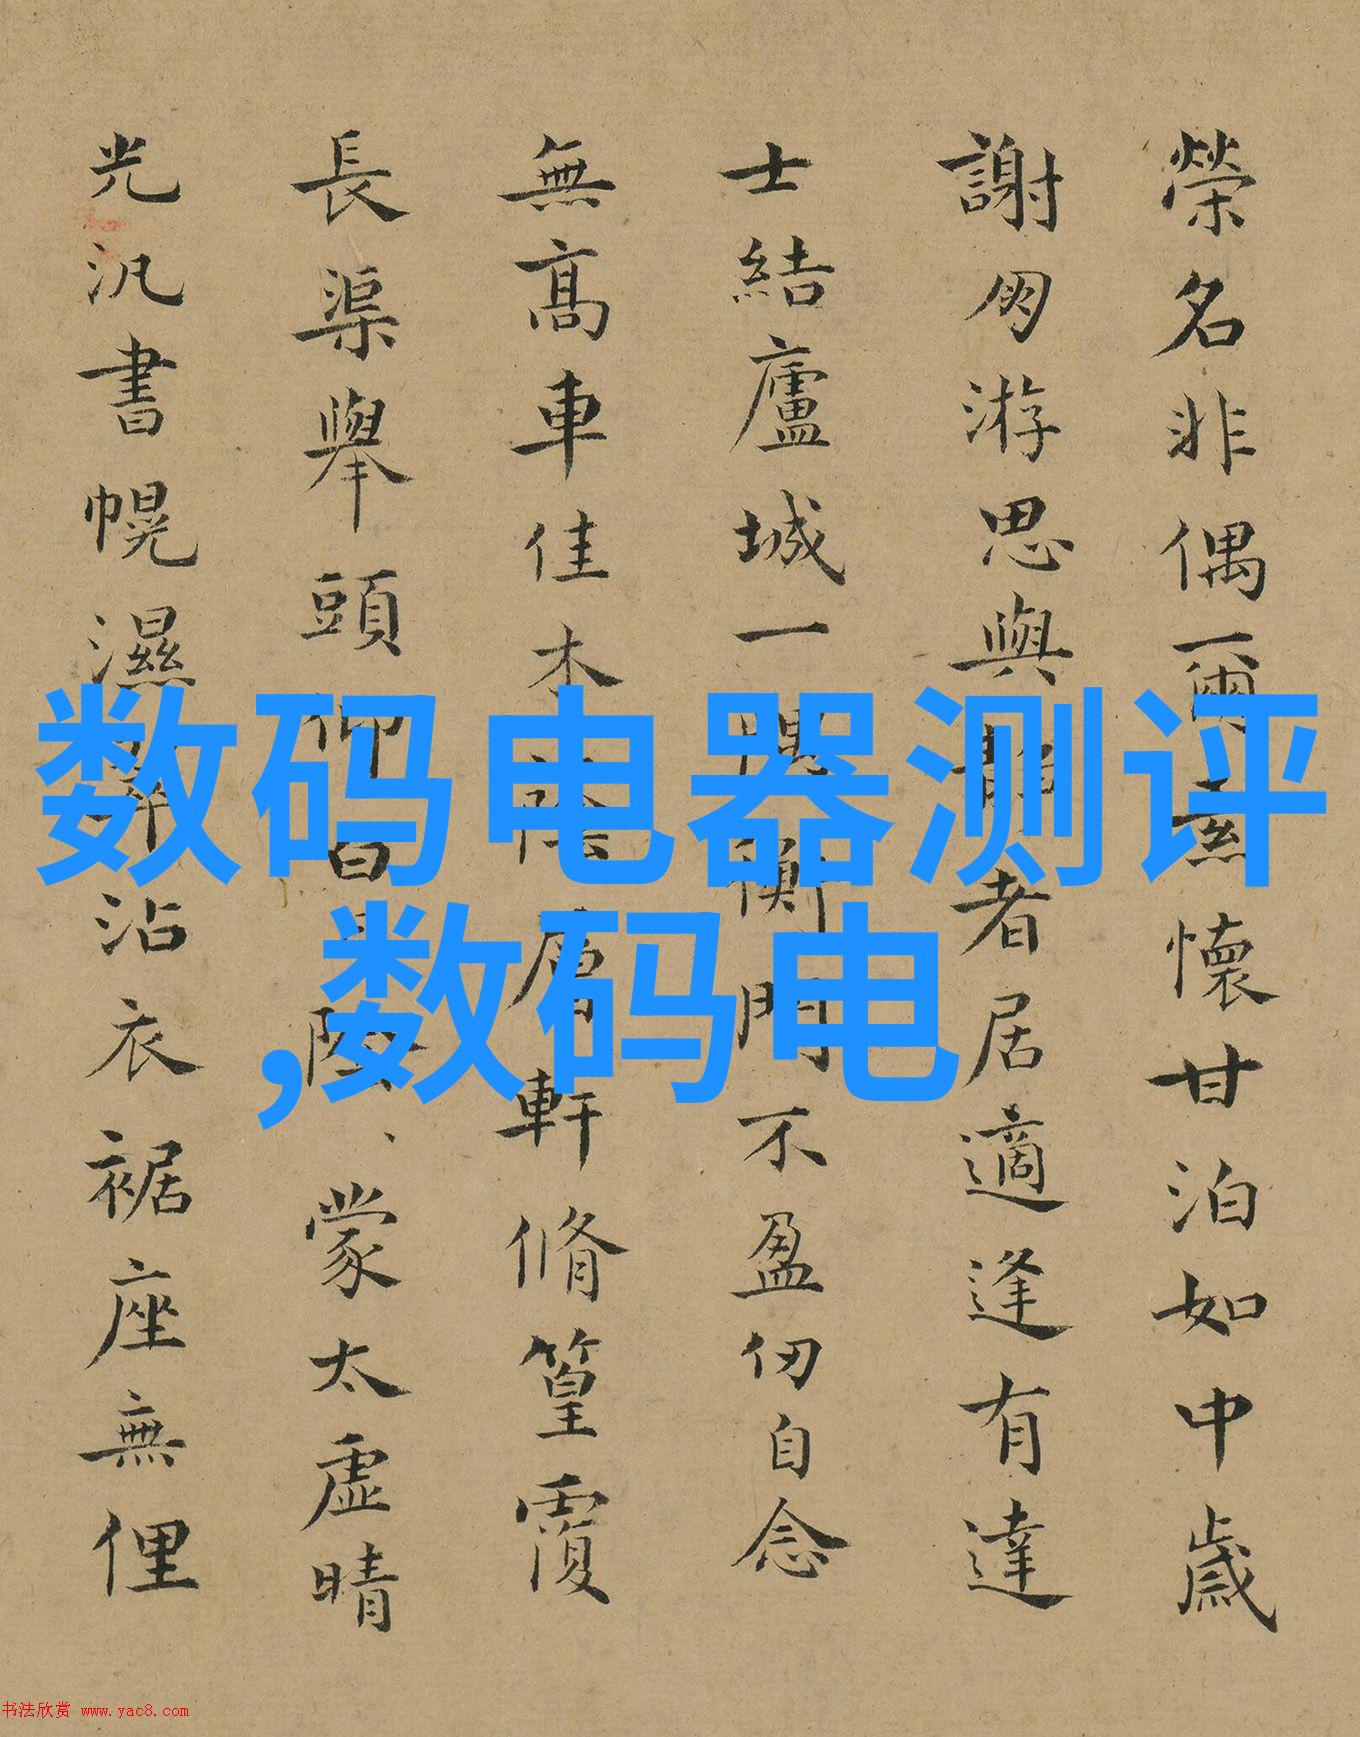 榮名非偶爾素懷甘泊如中歲
謝朋游思與靜者居適逢有達
士結廬城一隈衡門不盈仞自念
無高車佳木陰層軒脩篁覆
長渠舉頭仰白日陰、蒙太虛晴
光汎書幌濕翠沾衣裾座無俚
数码电器测评
,数码电
书法欣赏 www.yac8.com